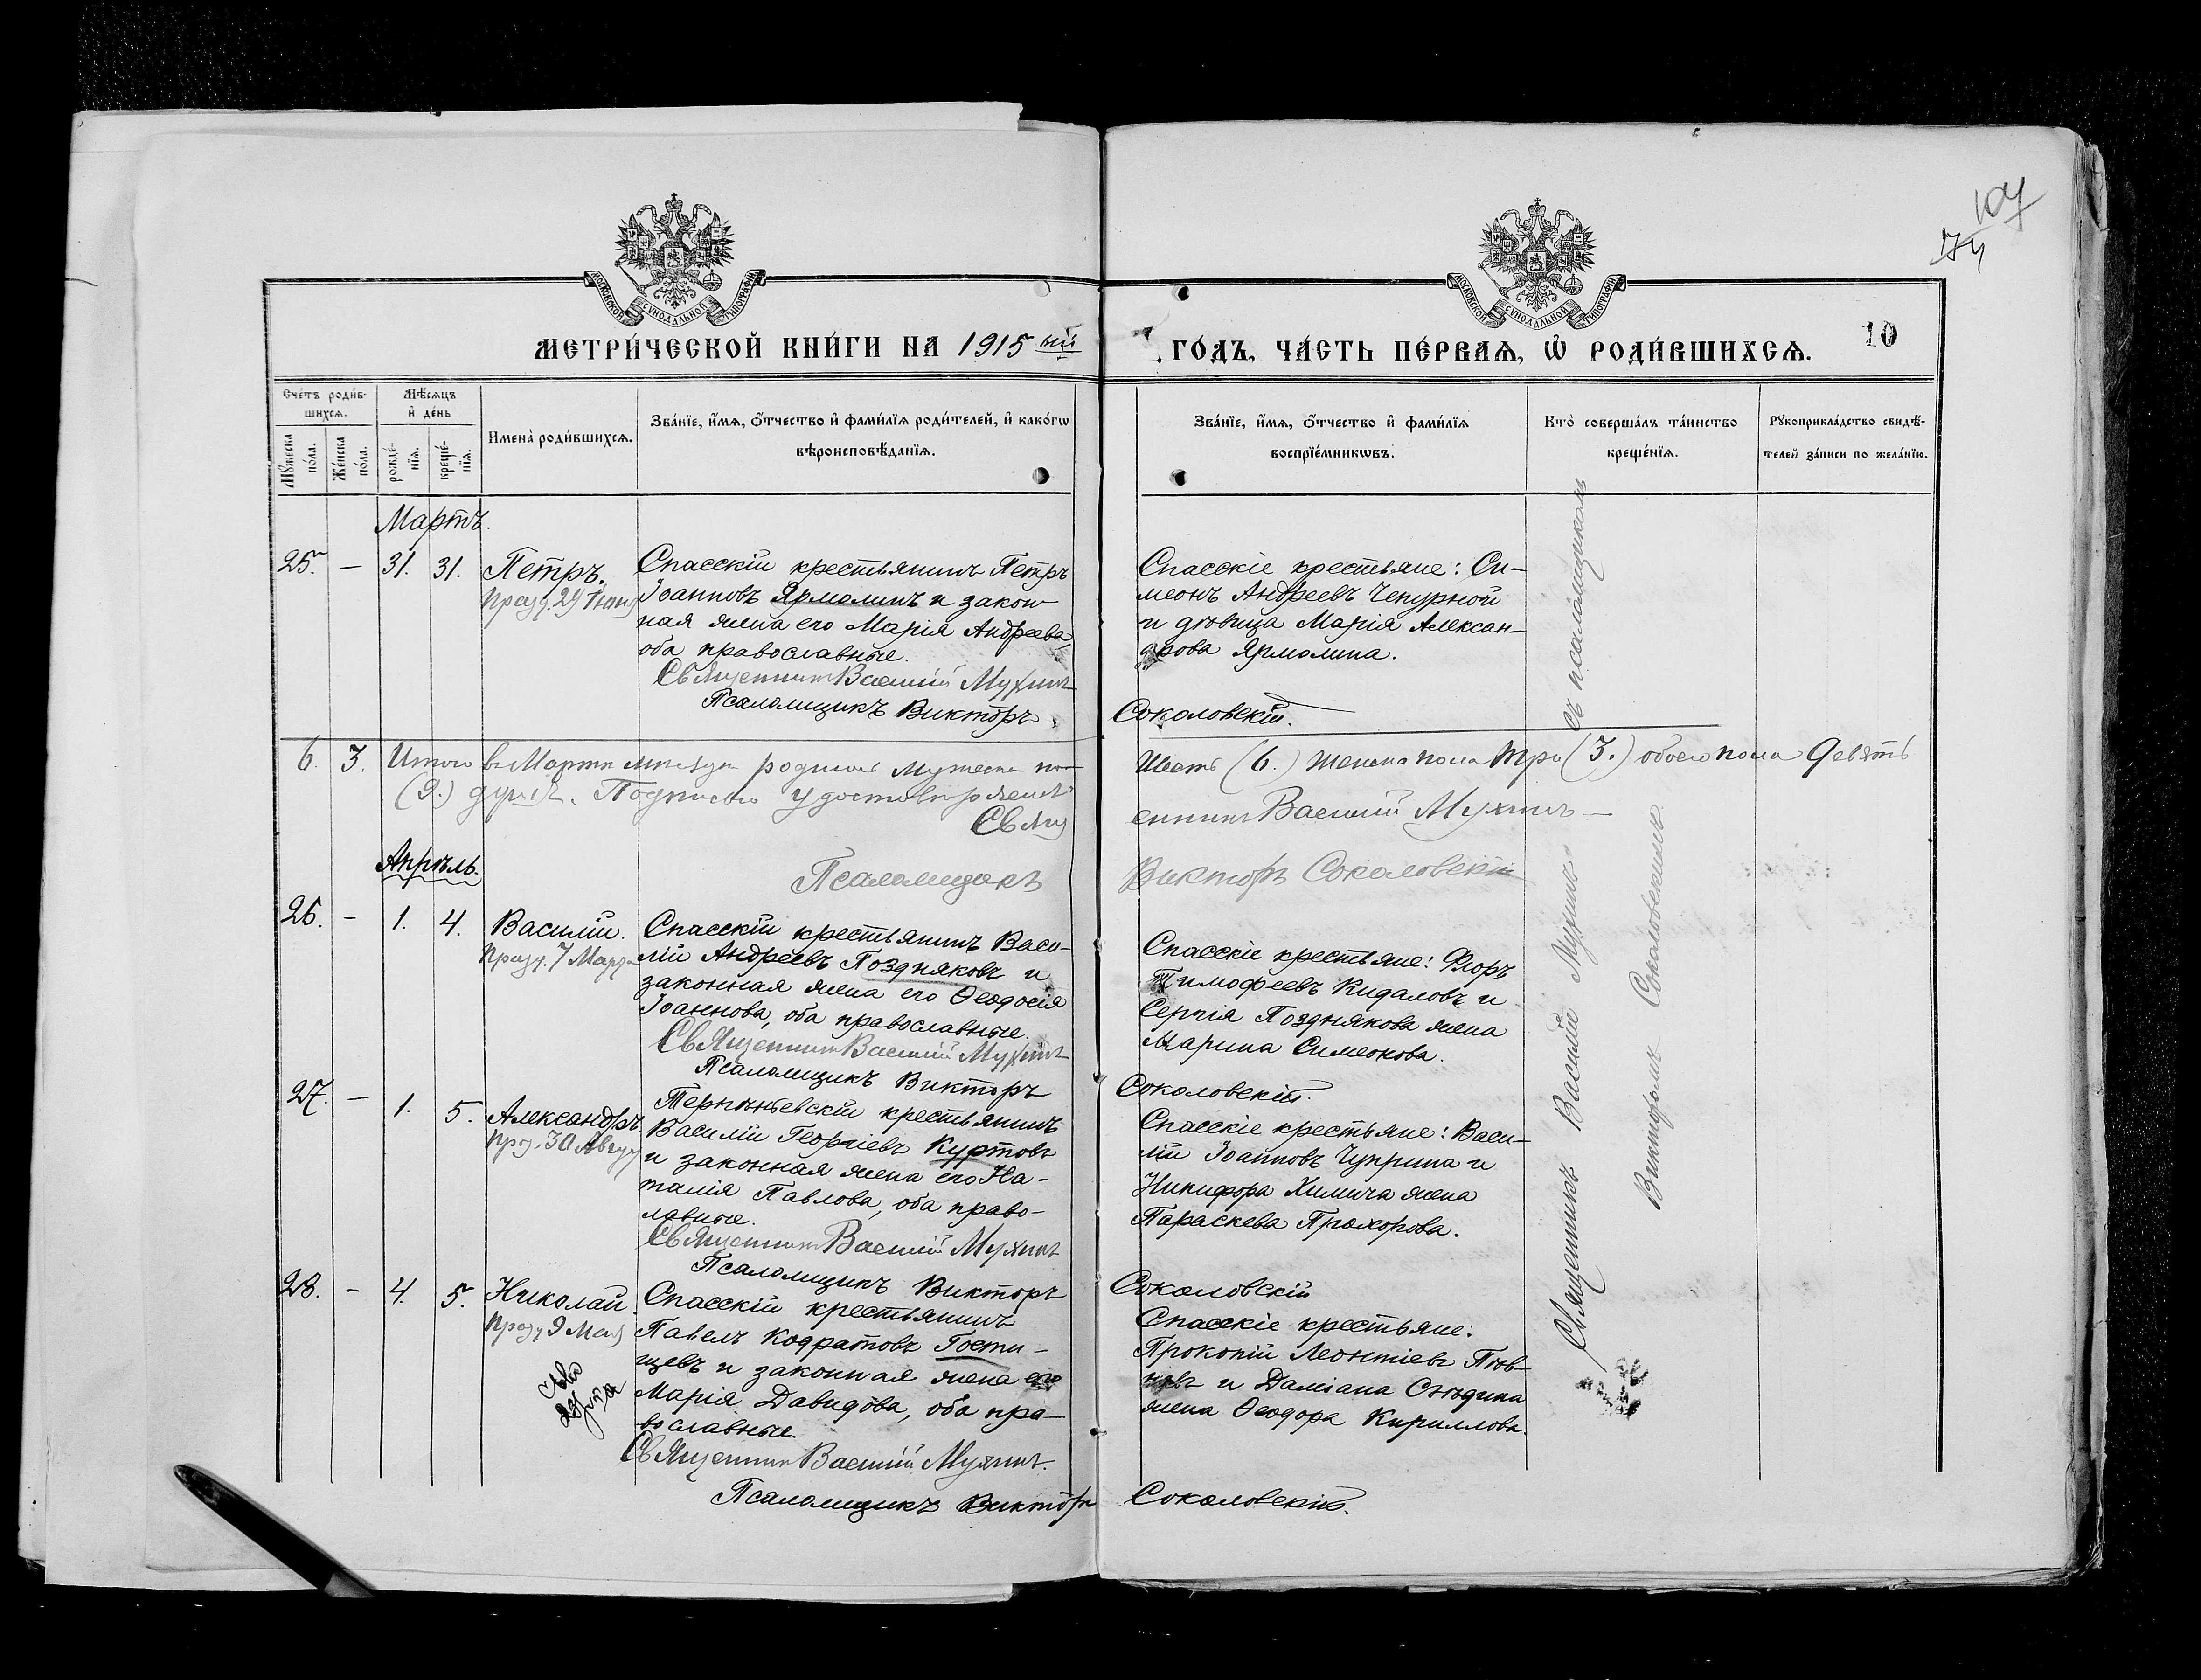 107
174
МОСКОВСКОЙ СѴНОДАЛЬНОЙ ТИПОГРАФІИ
МОСКОВСКОЙ СѴНОДАЛЬНОЙ ТИПОГРАФІИ
МЕТРИ́ЧЕСКОЙ КНИ́ГИ НА 1915 ый
ГО́ДЪ, ЧА́СТЬ ПЕ́РВАѦ, Ѡ҆ РОДИ́ВШИХСѦ.
10
Сче́тъ роди́в-
шихсѧ.
Мѣ́сѧцъ
и҆ де́нь
Мꙋ́жеска по́ла.
Же́нска по́ла.
рожде́-
нїѧ.
креще́-
нїѧ.
Имена̀ роди́вшихсѧ.
Зва́нїе, и҆́мѧ, ѻ҆́тчество и҆ фами́лїѧ роди́телей, и҆ како́гѡ
вѣроисповѣ́данїѧ.
Зва́нїе, и҆́мѧ, ѻ҆́тчество и҆ фами́лїѧ
воспрїе́мникѡвъ.
Кто̀ соверша́лъ та́инство
креще́нїѧ.
Рꙋкоприкла́дство свидѣ́-
телей за́писи по жела́нїю.
Мартъ.
25. — 31. 31. Петръ.
Празд. 29 Іюня
Спасскій крестьянинъ Петръ
Іоанновъ Ярмолинъ и закон-
ная жена его Марія Андреева,
оба православные.
Священникъ Василій Мухинъ
Псаломщикъ Викторъ
Спасскіе крестьяне: Си-
меонъ Андреевъ Чепурной
и дѣвица Марія Алексан-
дрова Ярмолина.
Соколовскій.
6. 3. Итого въ Мартѣ мѣсяцѣ родилось мужеска по-
(9.) душъ. Подписью удостовѣряемъ
Свящ
Шесть (6.) женска пола три (3.) обоего пола девять
енникъ Василій Мухинъ —
Апрѣль.
Псаломщикъ
Викторъ Соколовскій
26. — 1. 4. Василій.
Празд. 7 Марта
Спасскій крестьянинъ Васи-
лій Андреевъ Поздняковъ и
законная жена его Ѳеодосія
Іоаннова, оба православные.
Священникъ Василій Мухинъ
Псаломщикъ Викторъ
Спасскіе крестьяне: Флоръ
Тимофеевъ Кидаловъ и
Сергія Позднякова жена
Марина Симеонова.
Соколовскій.
27. — 1. 5. Александръ.
Прд. 30 Авгус
Терпѣньевскій крестьянинъ
Василій Георгіевъ Куртовъ
и законная жена его На-
талія Павлова, оба право-
лавные.
Священникъ Василій Мухинъ
Псаломщикъ Викторъ
Спасскіе крестьяне: Васи-
лій Іоанновъ Чуприна и
Никифора Химича жена
Параскева Прохорова.
Соколовскій
28. — 4. 5. Николай.
Празд 9 Мая
Спасскій крестьянинъ
Павелъ Кодратовъ Гости-
щевъ и законная жена его
Марія Давидова, оба пра-
вославные.
Священникъ Василій Мухинъ.
Псаломщикъ Викторъ
Спасскіе крестьяне:
Прокопій Леонтіевъ Пѣв-
невъ и Даміана Сѣдина
жена Ѳеодора Кириллова.
Соколовскій.
Священникъ Василій Мухинъ съ псаломщикомъ
Викторомъ Соколовскимъ